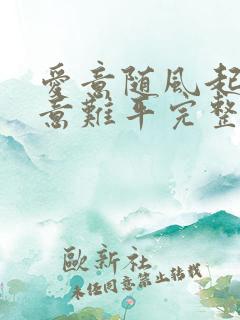 愛意随風起
意難平完整
歐新社
未经同意禁止转载